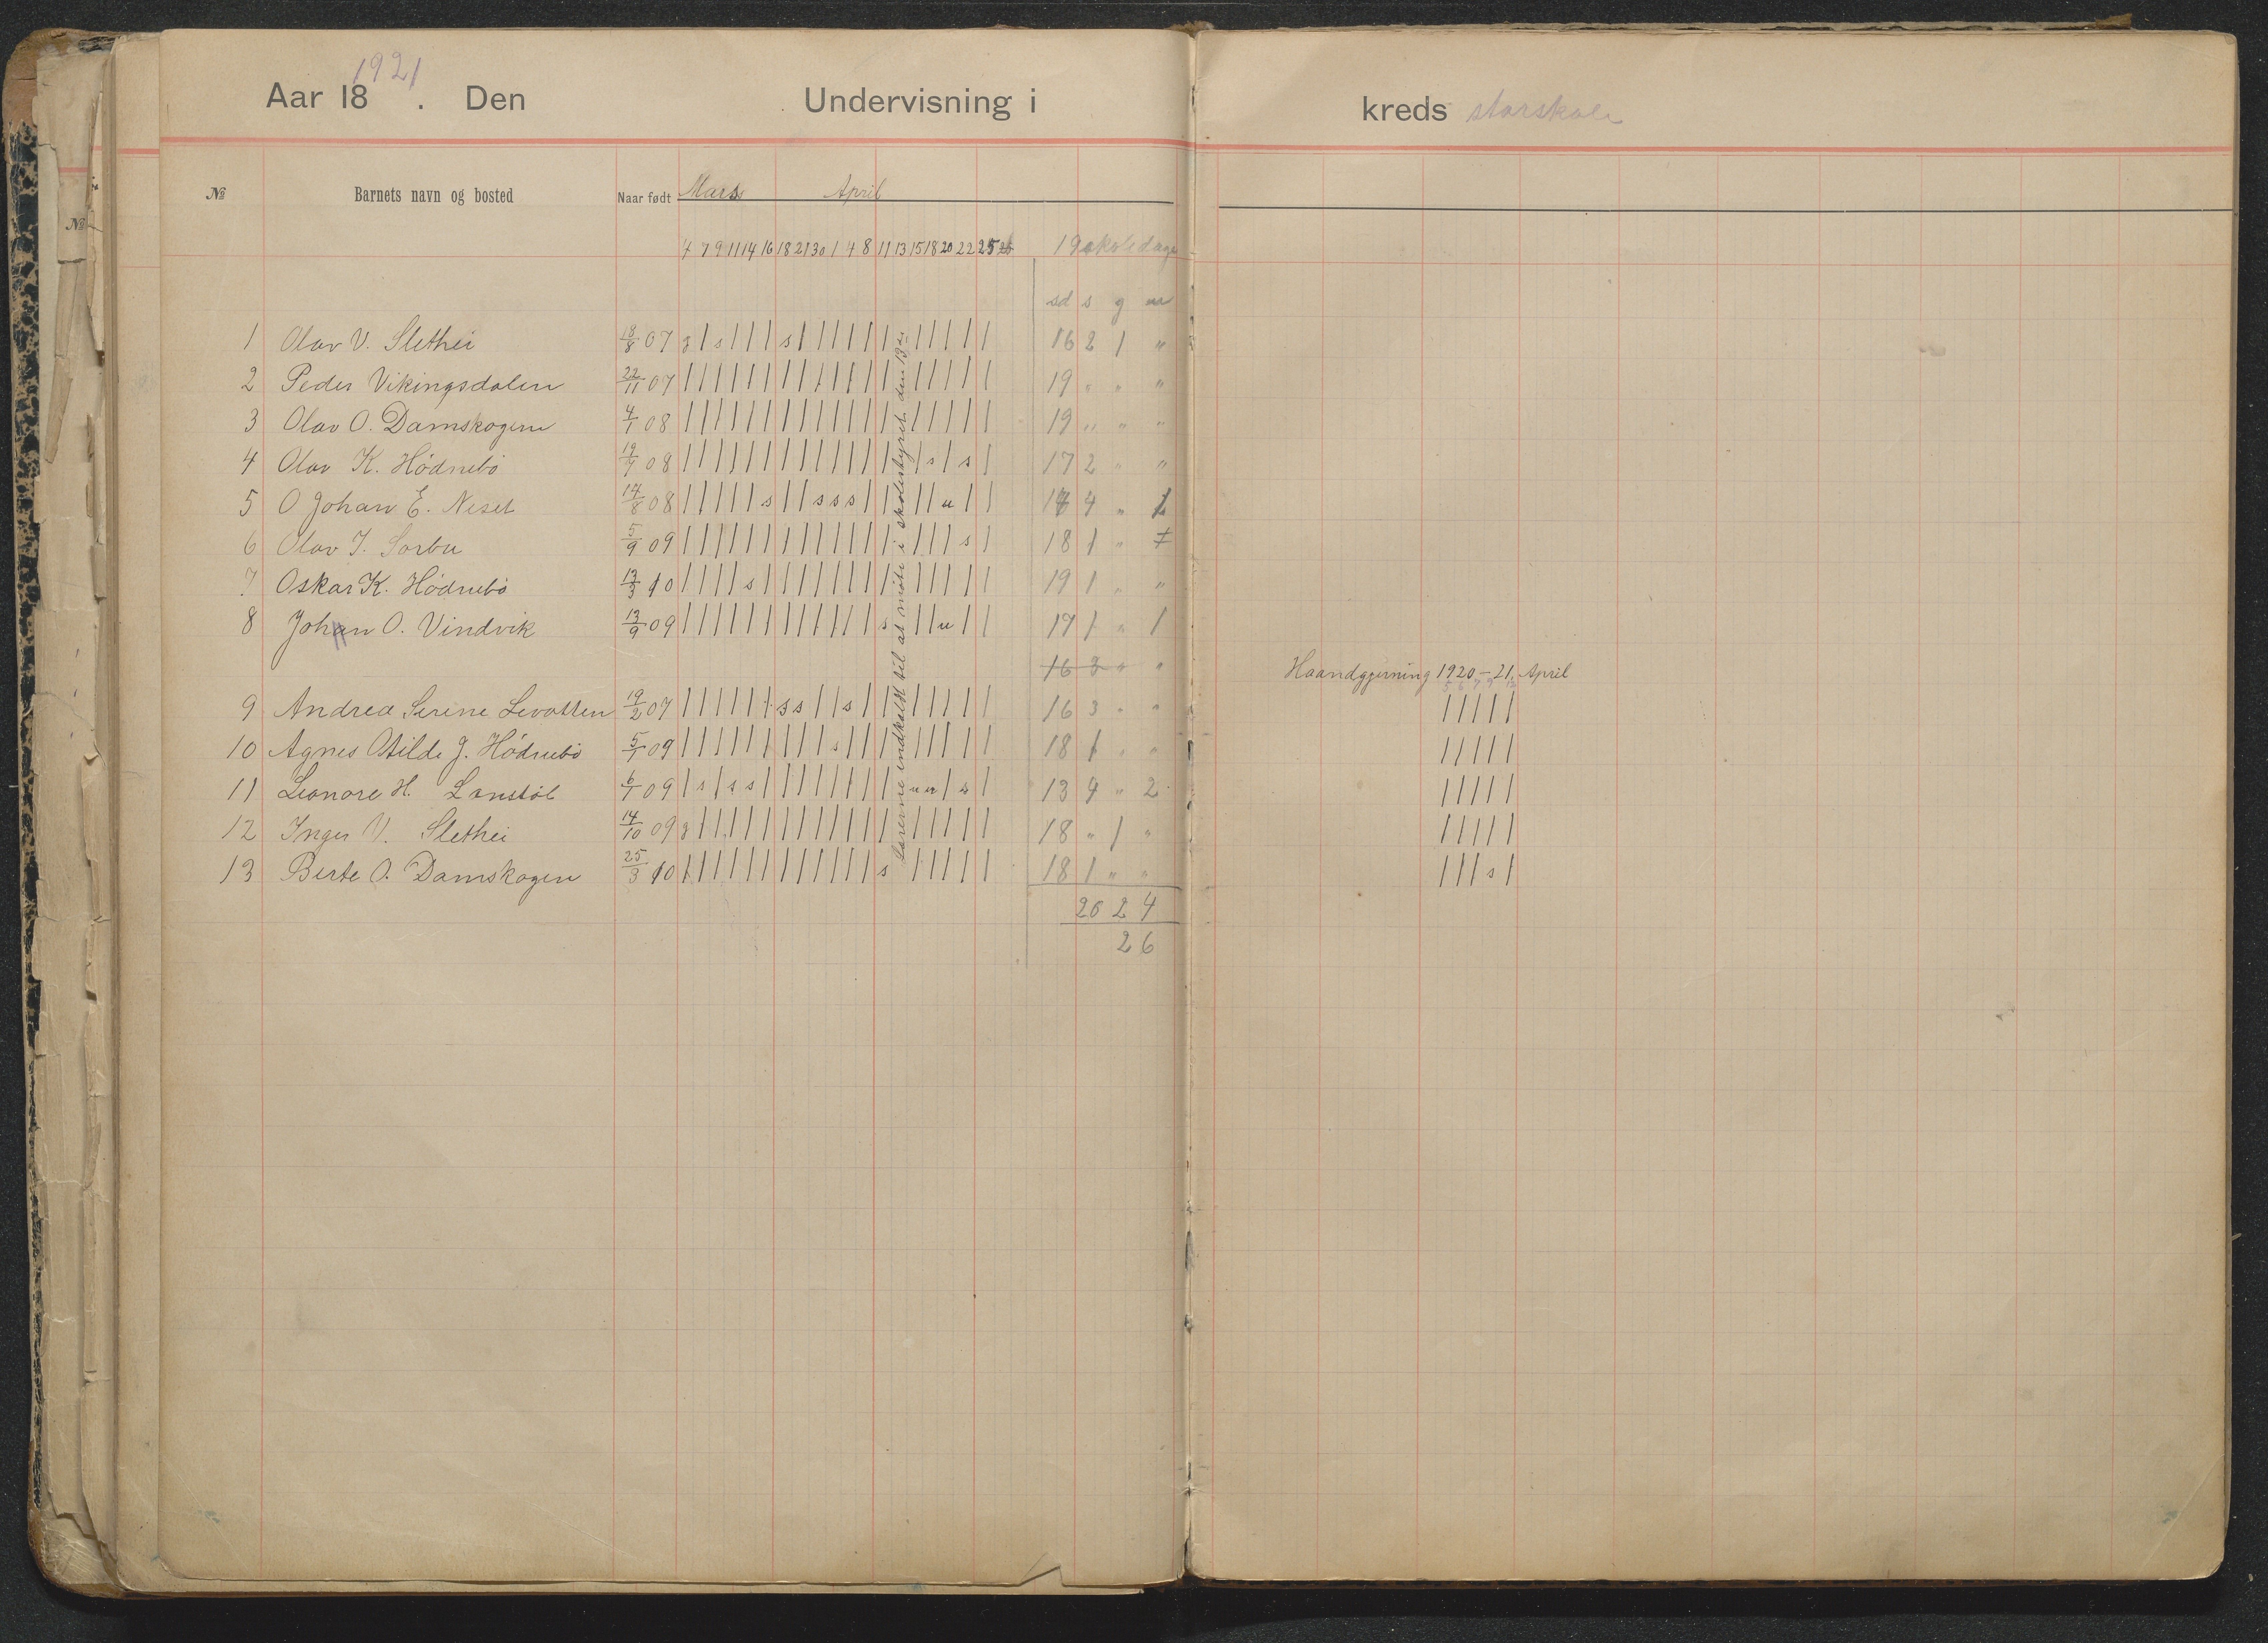 Aar 18 1921 . Den Undervisning i kreds storskole
№ Barnets navn og bosted Naar født Mars April
4 7 9 11 14 16 18 21 30 1 4 8 11 13 15 18 20 22 25 26 19 skoledage
sd s g u
1 Olav V. Slethei 18/8 07 g | s | | | s | | | | | | | | | | | 16 2 1 "
2 Peder Vikingsdalen 22/11 07 | | | | | | | | | | | | | | | | | | 19 " " "
3 Olav O. Damskogene 4/1 08 | | | | | | | | | | | | | | | | | | 19 " " "
4 Olav K. Hödnebö 19/7 08 | | | | | | | | | | | | | | s | s | 17 2 " "
5 O Johan E. Neset 14/8 08 | | | | | s | | s s s | | | | u | | 4 " 1
6 Olav J. Sorbu 5/9 09 | | | | | | | | | | | | | | | | s | 18 1 "
7 Oskar K. Hödnebö 13/3 10 | | | | s | | | | | | | | | | | | | 19 1 " "
8 Johan O. Vindvik 13/9 09 | | | | | | | | | | | | s | | u | | 17 1 " 1
16 3 " "
9 Andrea Serine Levatten 19/2 07 | | | | | | s s | | s | | | | | | | 16 3 " "
10 Agnes Otilde J. Hödnebö 5/1 09 | | | | | | | | | s | | | | | | | | 18 1 " "
11 Leonore H. Lonstöl 6/1 09 | s | s s | | | | | | | | u u | s | 13 4 " 2
12 Inger V. Slethei 14/10 09 g | | | | | | | | | | | | | | | | | 18 " 1 "
13 Berte O. Damskogen 25/3 10 | | | | | | | | | | | | s | | | | | 18 1 " "
20 2 4
26
Lærerne indkaldt til at möte i skolestyret den 13de
Haandgjerning 1920-21. April
5 6 7 9 12
| | | | |
| | | | |
| | | | |
| | | | |
| | | s |
№